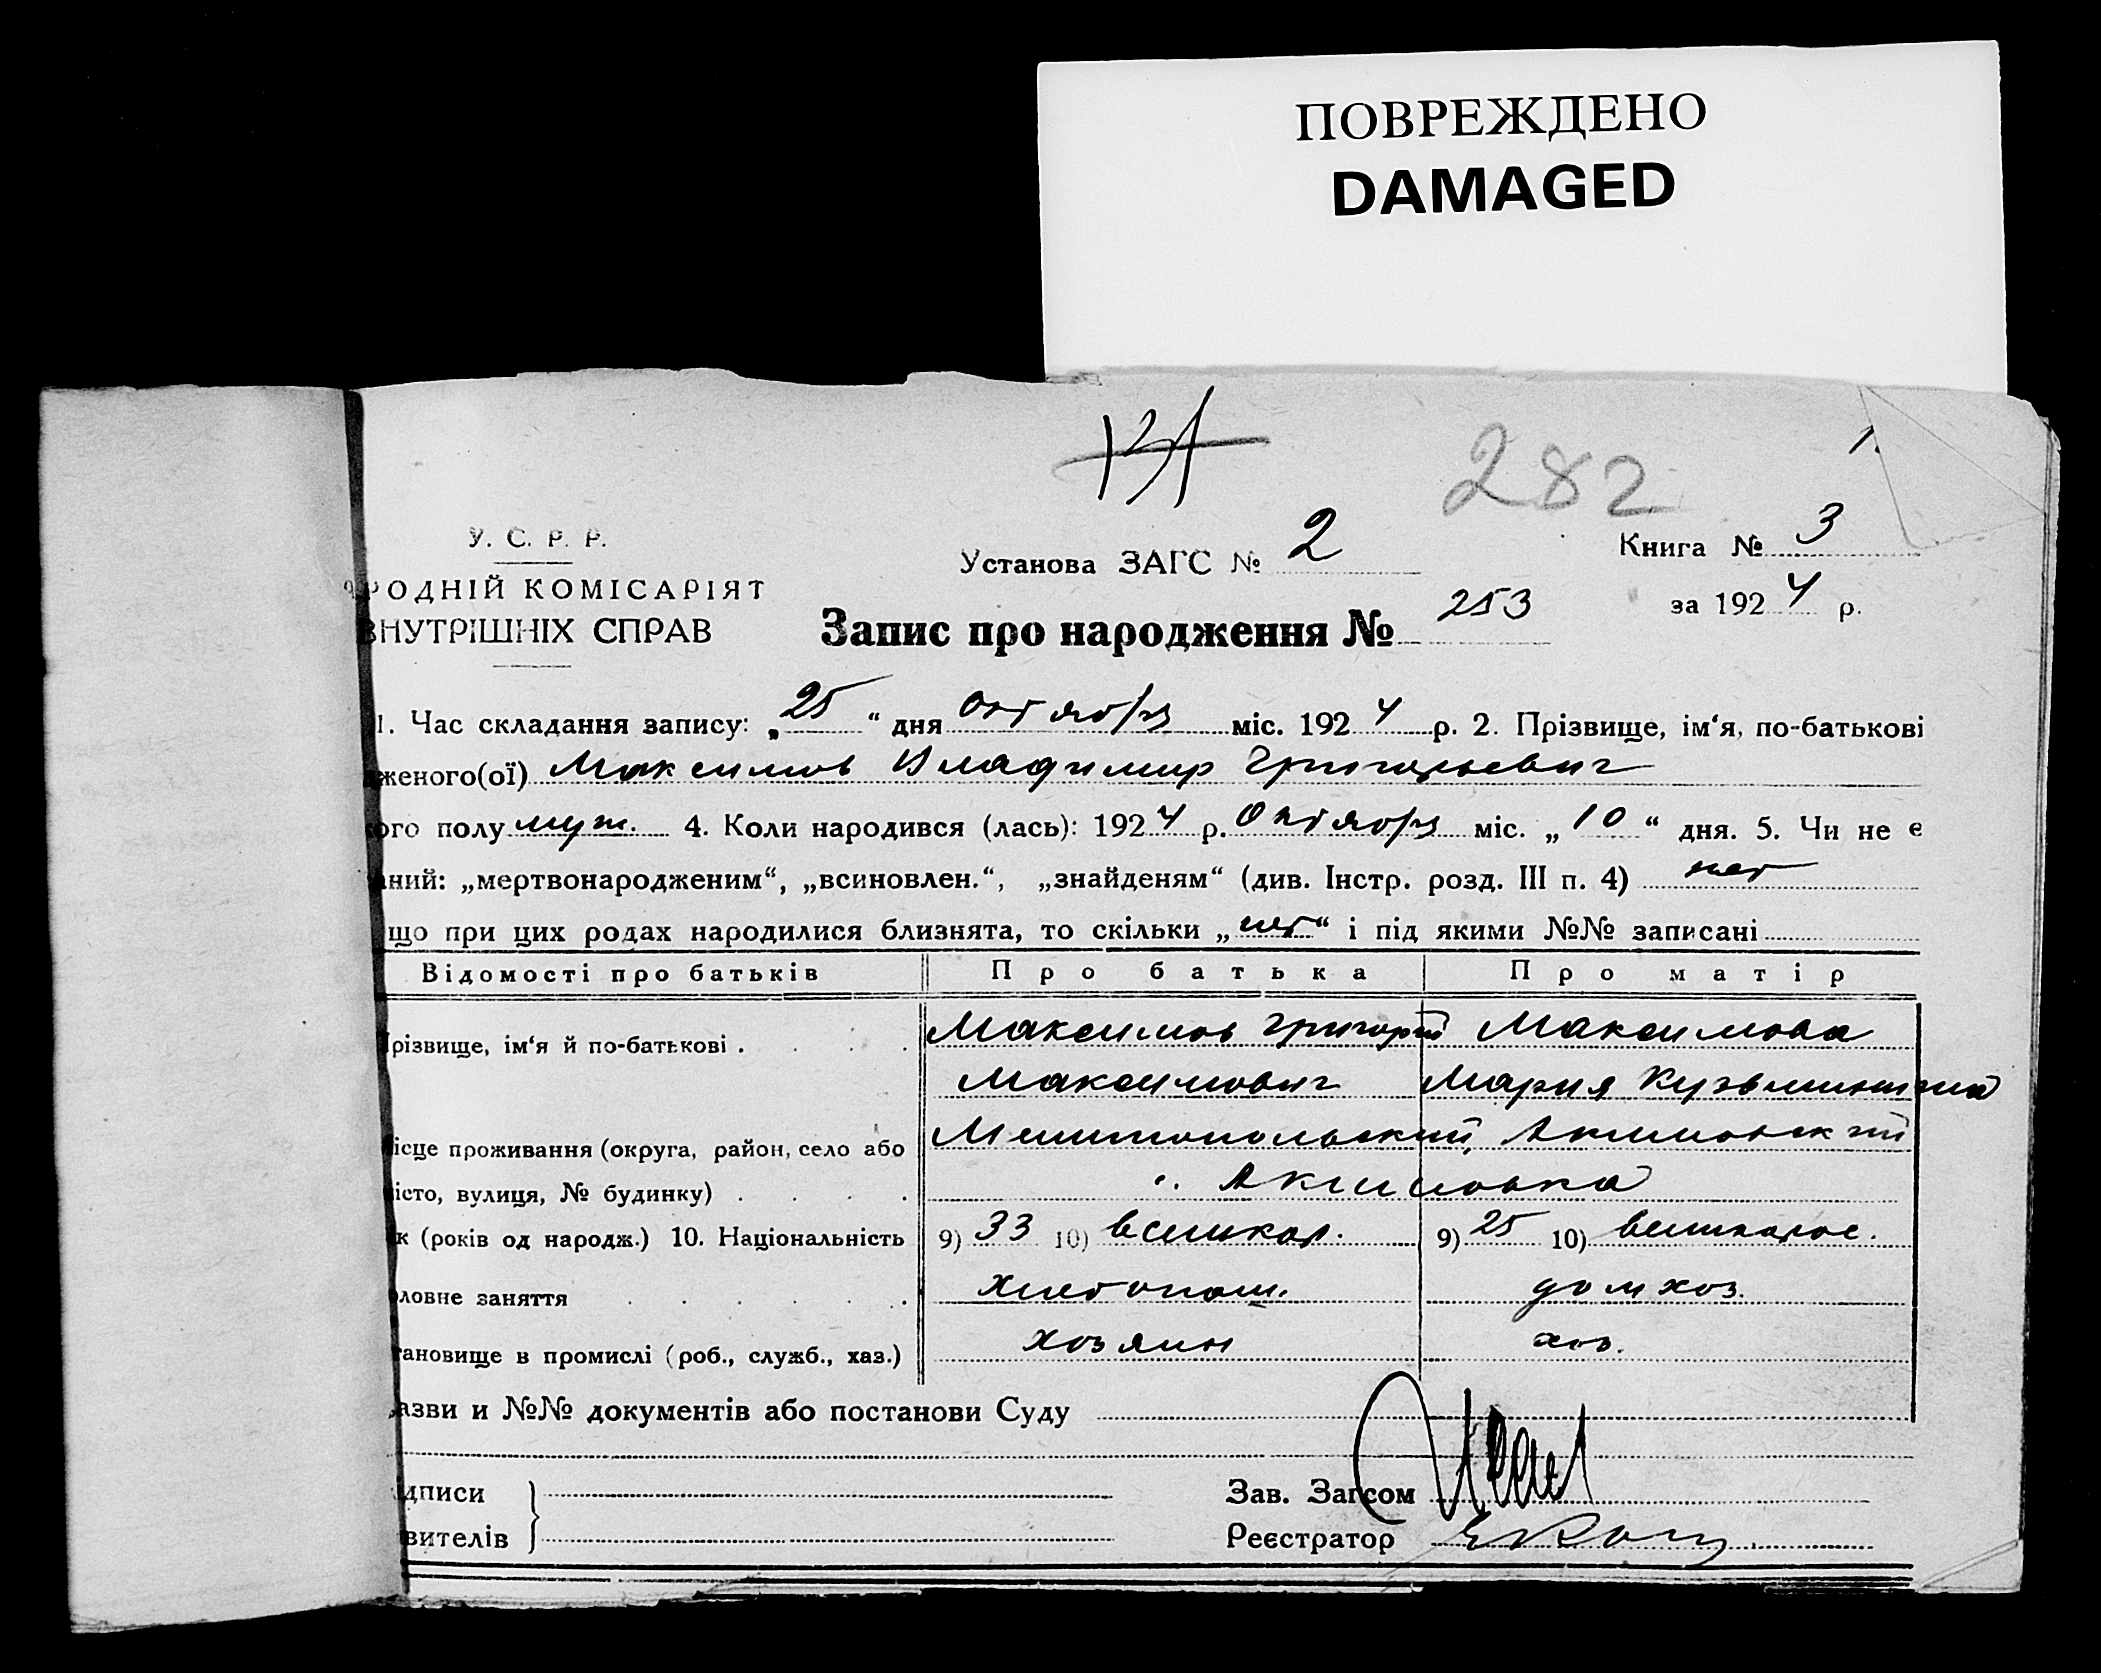 ПОВРЕЖДЕНО
DAMAGED
131
282
1.
У. С. Р. Р.
Установа ЗАГС № 2
Книга № 3
РОДНІЙ КОМІСАРІЯТ
за 1924 р.
ВНУТРІШНІХ СПРАВ
Запис про народження № 253
1. Час складання запису: „25“ дня октября міс. 1924 р. 2. Прізвище, ім‘я, по-батькові
женого(ої) Максимов Владимир Григорьевич
ого полу муж. 4. Коли народився (лась): 1924 р. Октября міс. „10“ дня. 5. Чи не є
аний: „мертвонародженим“, „всиновлен.“, „знайденям“ (див. Інстр. розд. III п. 4) нет
що при цих родах народилися близнята, то скільки „нет“ і під якими №№ записані
Відомості про батьків Про батька Про матір
різвище, ім‘я й по-батькові . Максимов Григорий Максимова
Максимович Мария Кузьминична
ісце проживання (округа, район, село або Мелитопольский, Акимовский
істо, вулиця, № будинку) . Акимовка
к (років од народж.) 10. Національність 9) 33 10) великор. 9) 25 10) великорос.
ловне заняття хлебопаш. дом хоз.
тановище в промислі (роб., служб., хаз.) хозяин хоз.
азви и №№ документів або постанови Суду
дписи
Зав. Загсом
вителів
Реєстратор